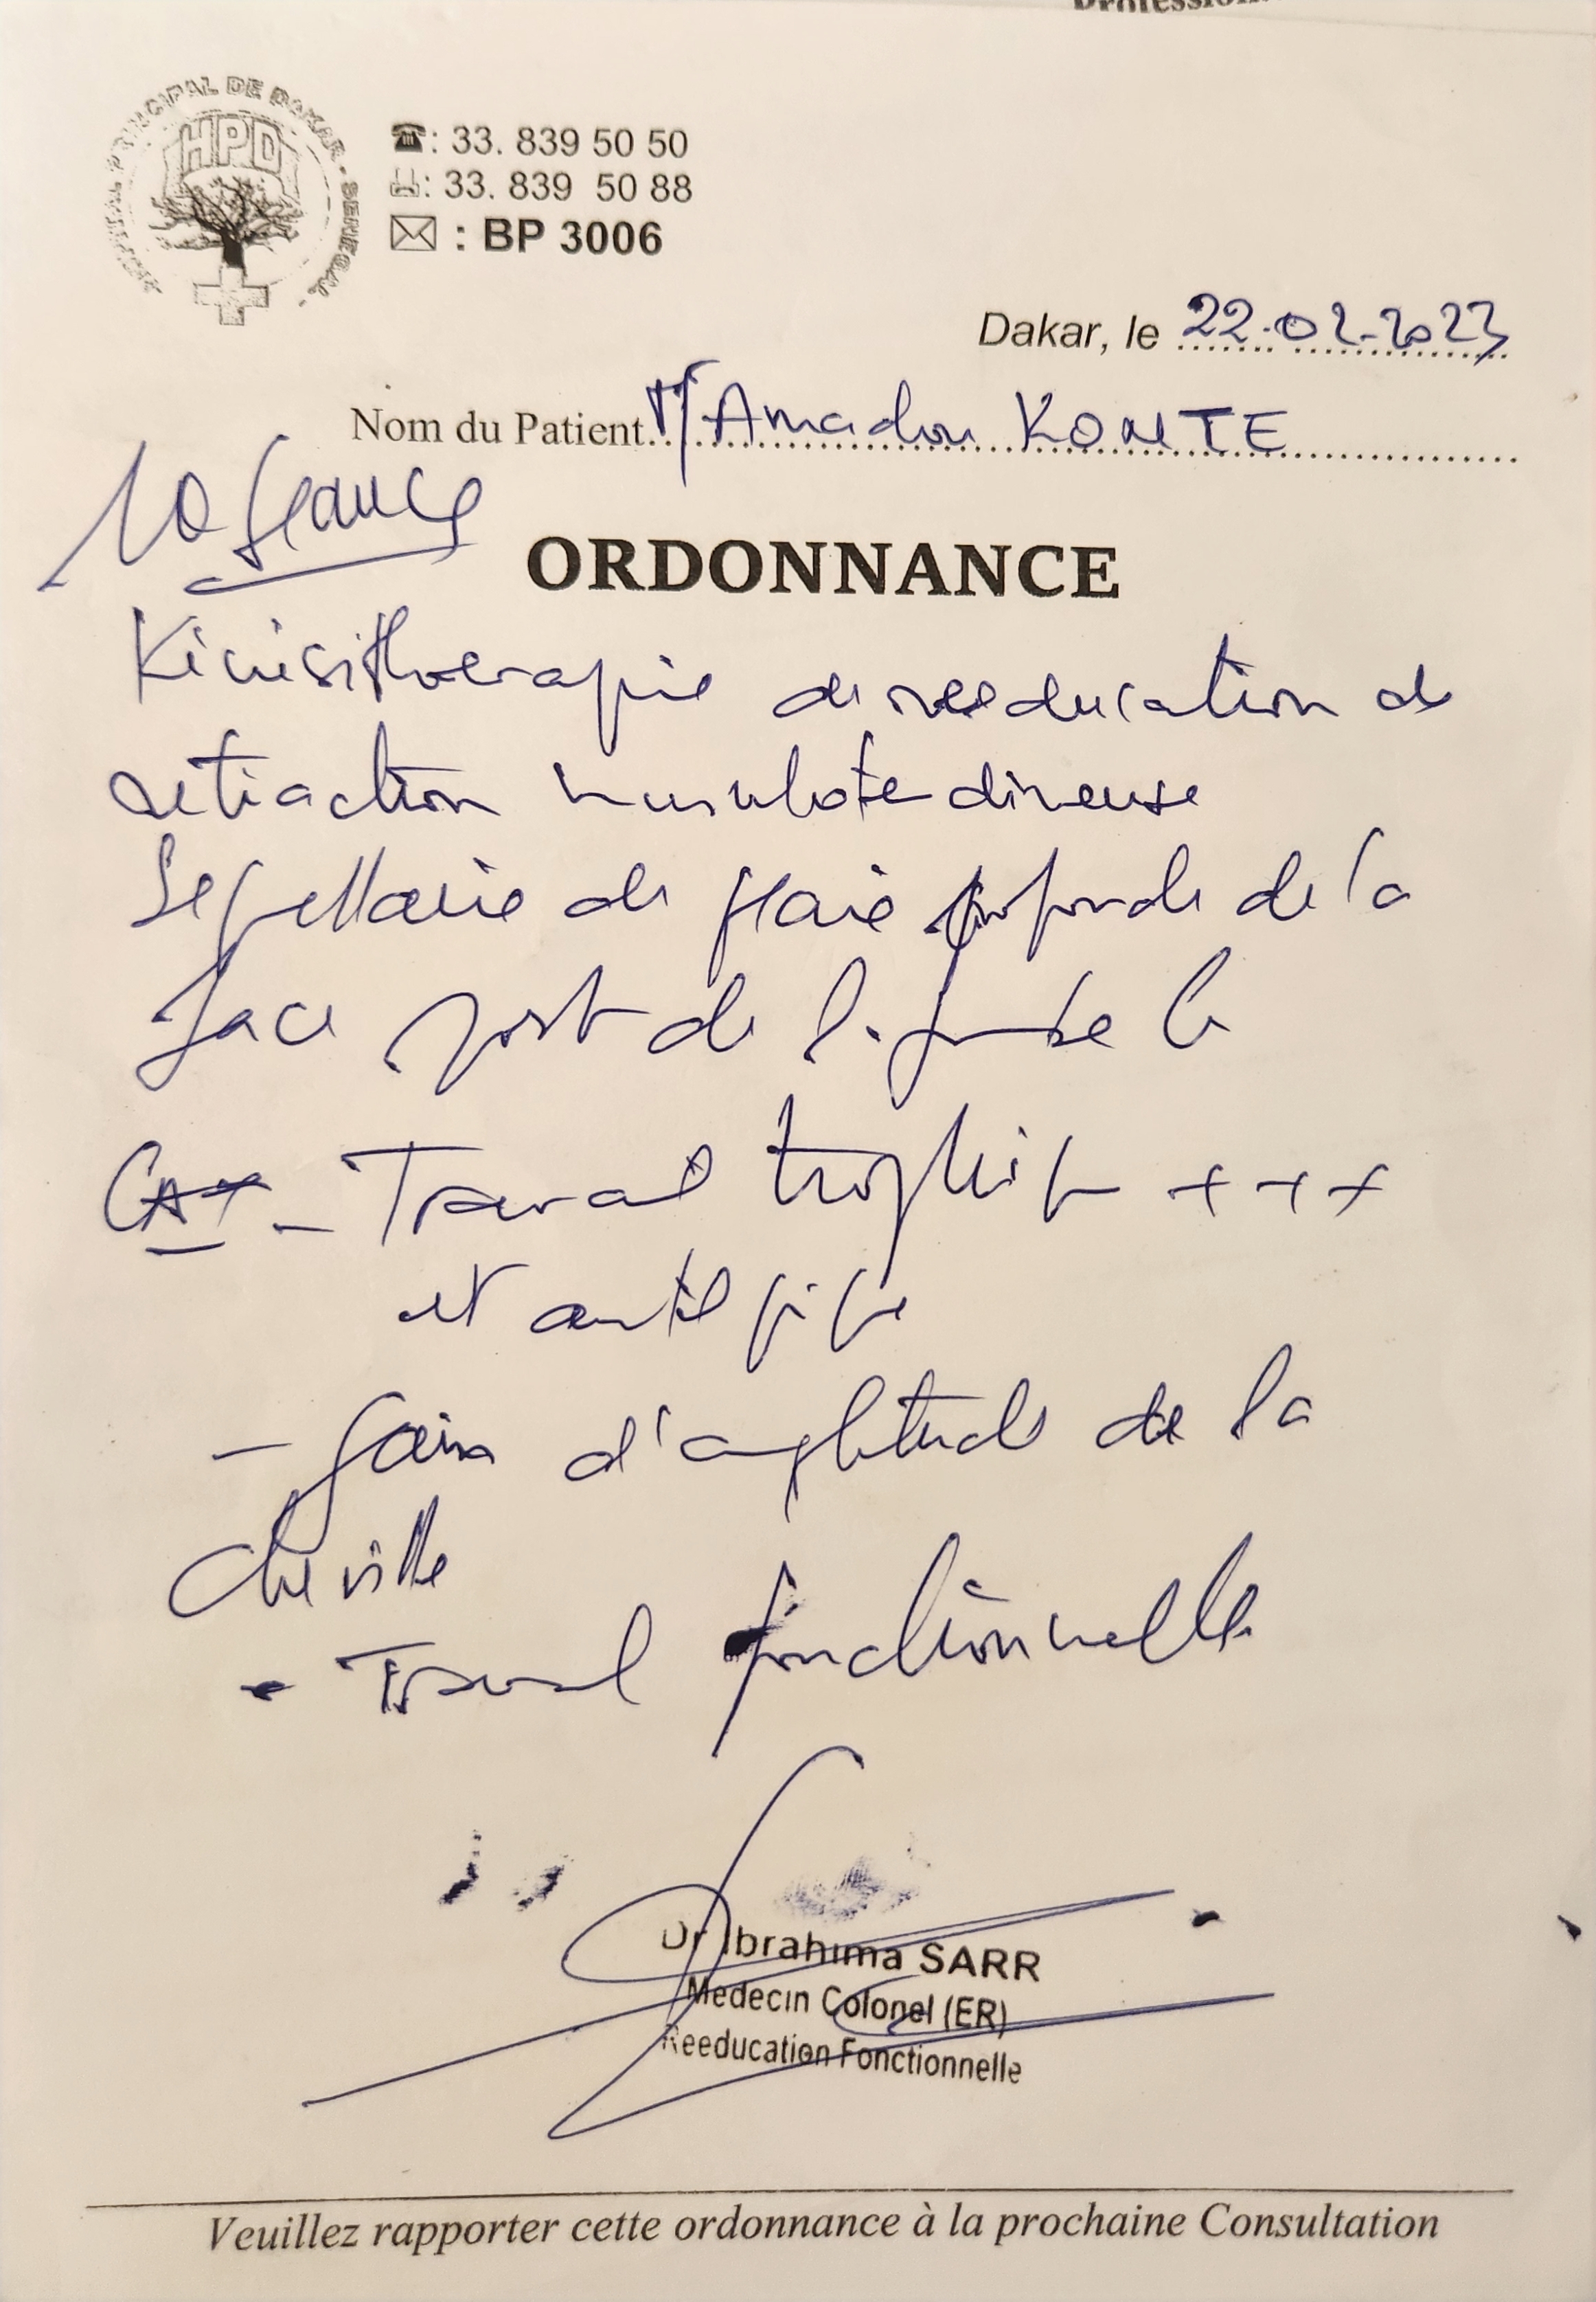 HOPITAL PRINCIPAL DE DAKAR - SENEGAL -
HPD
: 33. 839 50 50
: 33. 839 50 88
: BP 3006
Dakar, le 22-02-2023
Nom du Patient Mr Amadou KONTE
10 séances
ORDONNANCE
Kinésithérapie de rééducation de
rétraction musculotendineuse
séquellaire de plaie profonde de la
face post de la jambe
CAT - Travail trophique +++
et antalgique
- Gain d'amplitude de la
cheville
- Travail fonctionnelle
Dr Ibrahima SARR
Medecin Colonel (ER)
Reeducation Fonctionnelle
Veuillez rapporter cette ordonnance à la prochaine Consultation